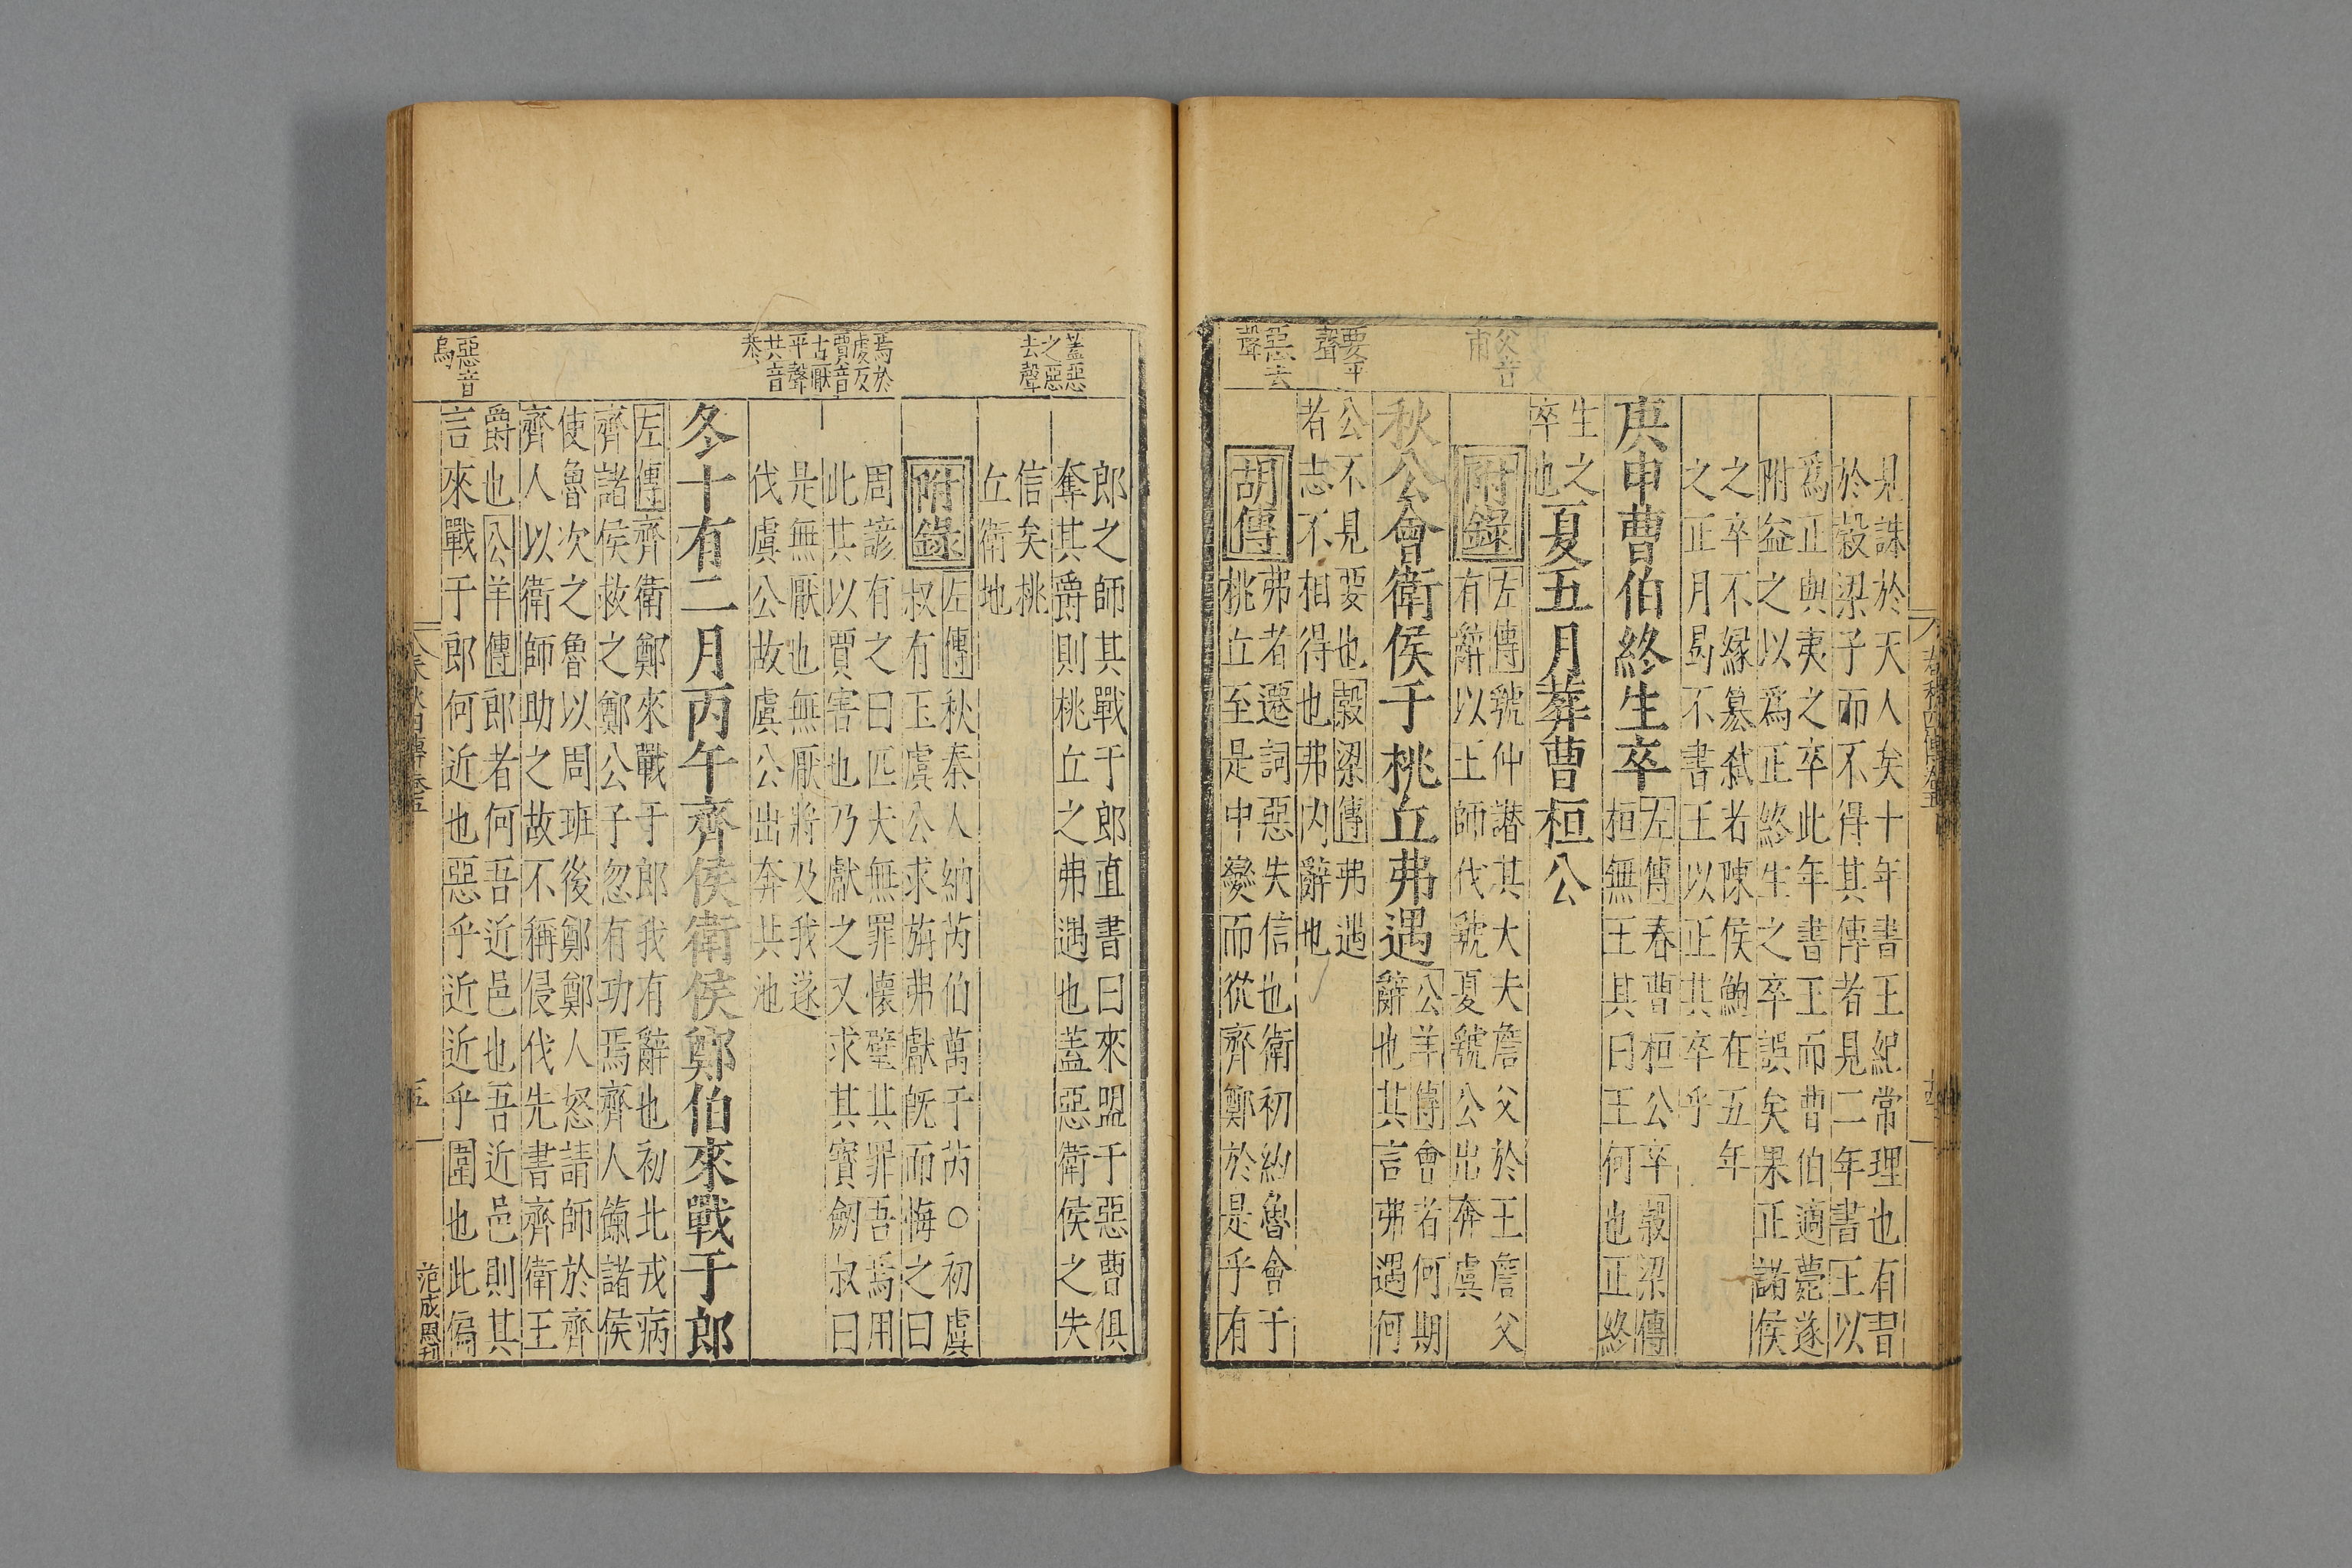 見誅於天人矣十年書王紀常理也有書
於穀梁子而不得其傳者見二年書王以
爲正與夷之卒此年書王而曹伯適薨遂
附益之以爲正終生之卒誤矣果正諸侯
之卒不緣篡弑者陳侯鮑在五年
之正月曷不書王以正其卒乎
庚申曹伯終生卒
左傳春曹桓公卒穀梁傳
桓無王其曰王何也正終
生之
卒也
夏五月葬曹桓公
父音
甫
附錄
左傳虢仲譖其大夫詹父於王詹父
有辭以王師伐虢夏虢公出奔虞
秋公會衛侯于桃丘弗遇
公羊傳會者何期
辭也其言弗遇何
要平
聲
公不見要也穀梁傳弗遇
者志不相得也弗內辭也
惡去
聲
胡傳
弗者遷詞惡失信也衛初約魯會于
桃丘至是中變而從齊鄭於是乎有
郎之師其戰于郎直書曰來盟于惡曹俱
奪其爵則桃丘之弗遇也蓋惡衛侯之失
蓋惡
之惡
去聲
信矣桃
丘衛地
附錄
左傳秋秦人納芮伯萬于芮○初虞
叔有玉虞公求旃弗獻旣而悔之曰
焉於
虔反
賈音
古厭
平聲
共音
恭
周諺有之曰匹夫無罪懷璧其罪吾焉用
此其以賈害也乃獻之又求其寶劒叔曰
是無厭也無厭將及我遂
伐虞公故虞公出奔共池
冬十有二月丙午齊侯衛侯鄭伯來戰于郎
左傳齊衛鄭來戰于郎我有辭也初北戎病
齊諸侯救之鄭公子忽有功焉齊人餼諸侯
使魯次之魯以周班後鄭鄭人怒請師於齊
齊人以衛師助之故不稱侵伐先書齊衛王
惡音
烏
爵也公羊傳郎者何吾近邑也吾近邑則其
言來戰于郎何近也惡乎近近乎圍也此偏
范成恩刊